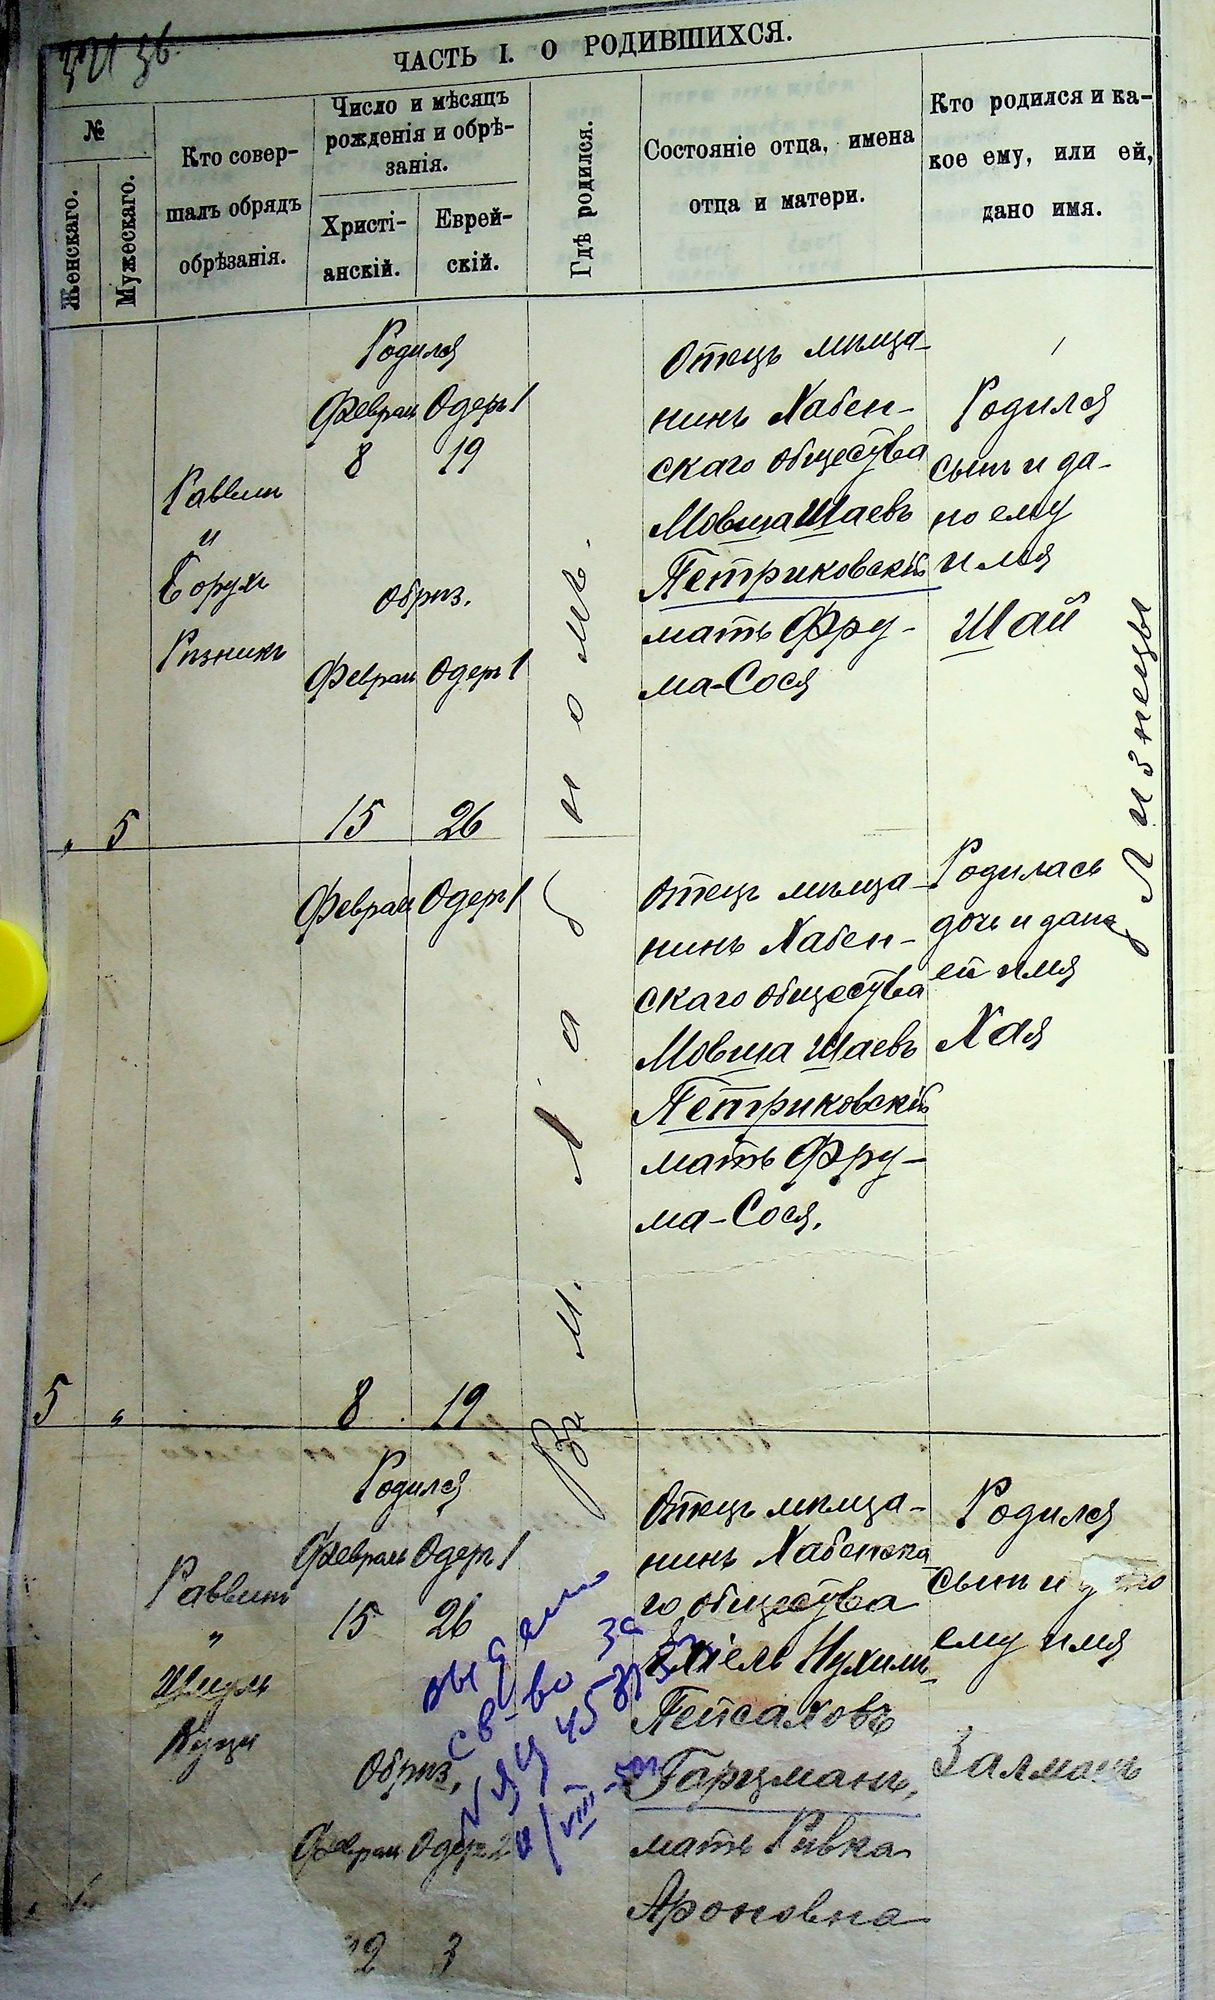 ЧАСТЬ I. О РОДИВШИХСЯ.
№
Женскаго.
Мужескаго.
Кто совер-
шалъ обрядъ
обрѣзанія.
Число и мѣсяцъ
рожденія и обрѣ-
занія.
Христі-
анскій.
Еврей-
скій.
Гдѣ родился.
Состояніе отца, имена
отца и матери.
Кто родился и ка-
кое ему, или ей,
дано имя.
5
Раввинъ
и
Борухъ
Рѣзникъ
Родился
Феврал Одеръ 1
8 19
Обрѣз.
Феврал Одеръ 1
15 26
Отецъ мѣща-
нинъ Хабен-
скаго общества
Мовша Шаевъ
Петриковскій
мать Фру-
ма-Сося
Родился
сынъ и да-
но ему
имя
Шай
5
Феврал Одеръ 1
8 19
Отецъ мѣща-
нинъ Хабен-
скаго общества
Мовша Шаевъ
Петриковскій
мать Фру-
ма-Сося.
Родилась
дочь и дано
ей имя
Хая
близнецы
Въ м.
Раввинъ
"
Шмуль
Куци
Родился
Февраль Одеръ 1
15 26
Обрѣз.
Феврал Одеръ 2
22 3
Отецъ мѣща-
нинъ Хабенска
го общества
Ехіель Нухимъ-
Пейсаховъ
Гарцманъ,
мать Ривка
Ароновна
Родился
сынъ и
ему имя
Залманъ
выдано
св-во за